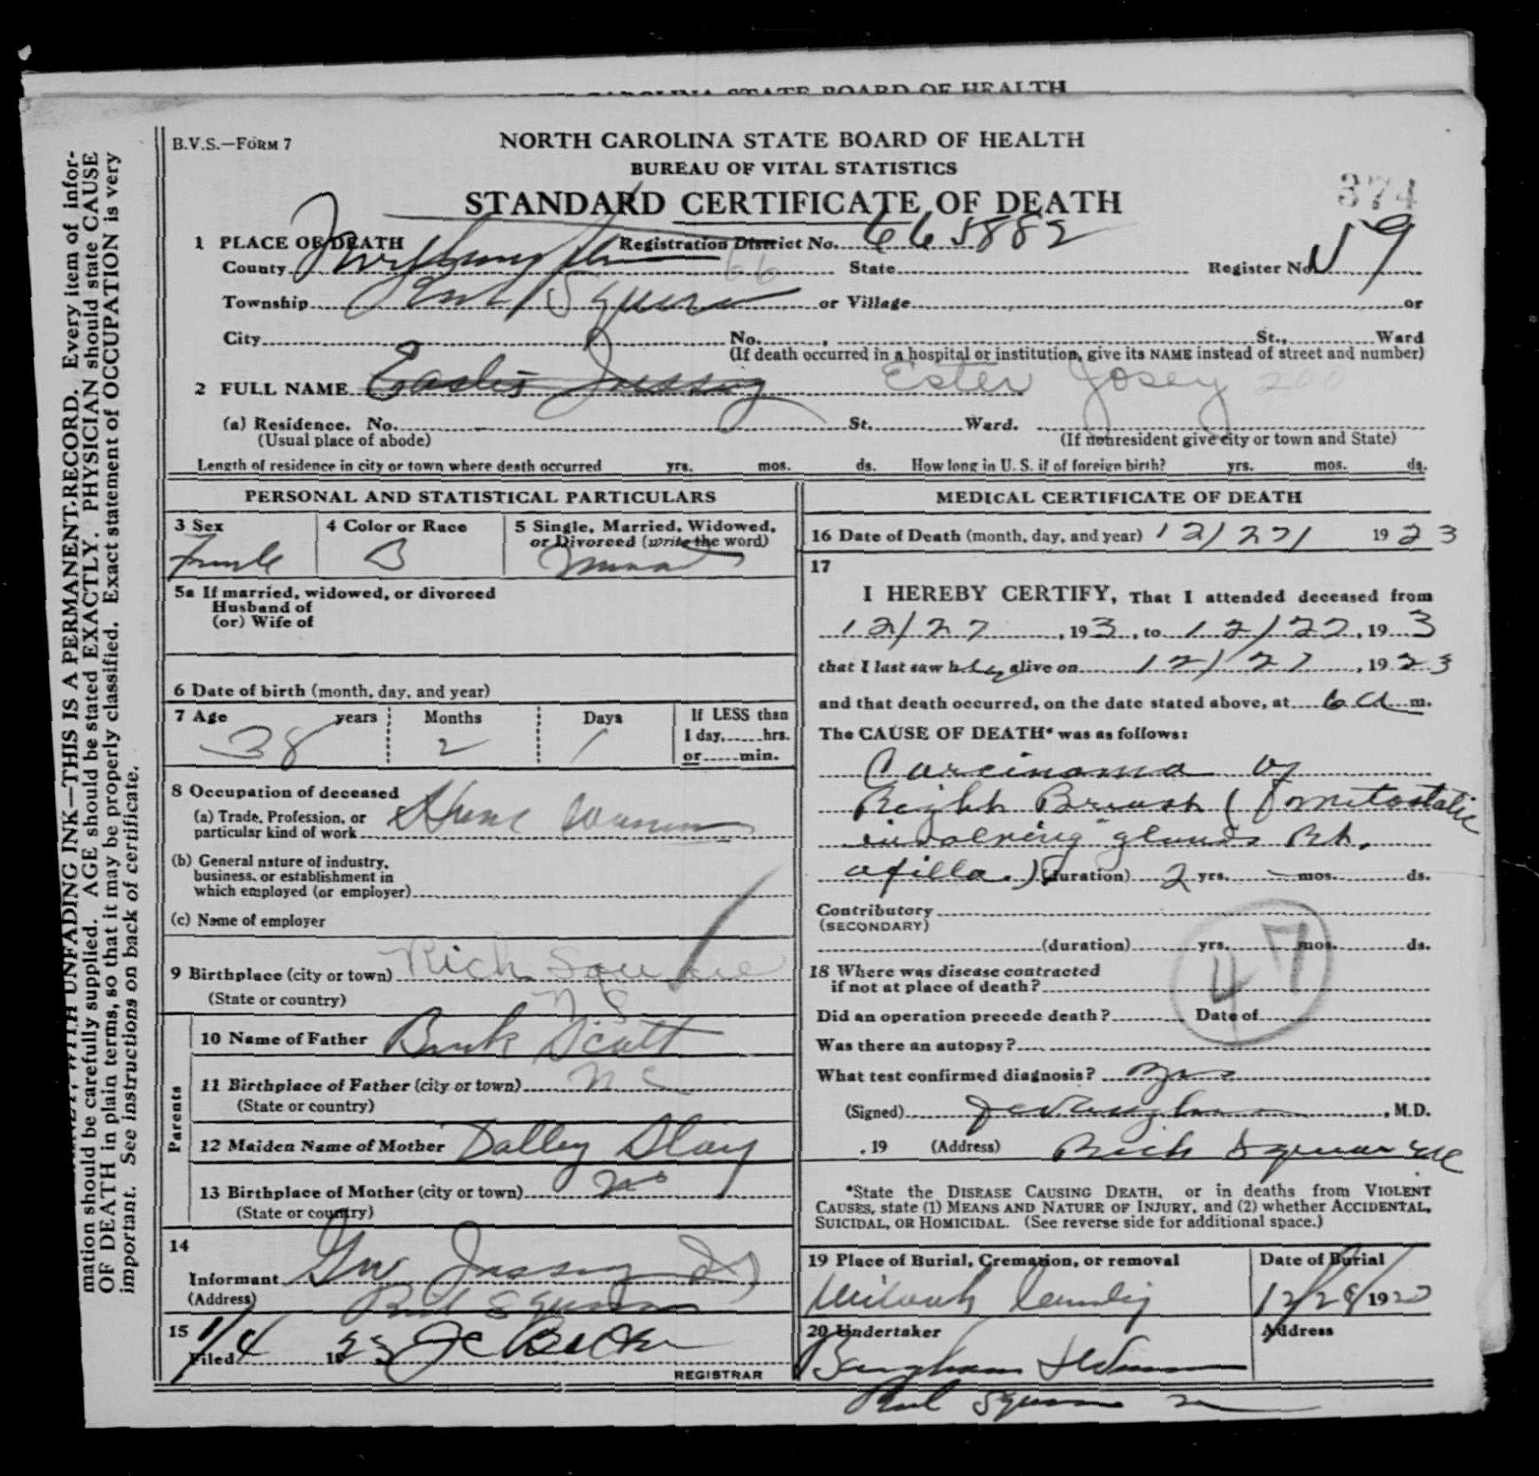 CAROLINA STATE BOARD OF HEALTH
B.V.S.—FORM 7
NORTH CAROLINA STATE BOARD OF HEALTH
BUREAU OF VITAL STATISTICS
STANDARD CERTIFICATE OF DEATH
374
1 PLACE OF DEATH Registration District No. 66 5882
County Northampton 66 State Register No. 59
Township Rich Square or Village or
City No. , St., Ward
(If death occurred in a hospital or institution, give its NAME instead of street and number)
2 FULL NAME Ester Josey 200
(a) Residence. No. St. Ward.
(Usual place of abode) (If nonresident give city or town and State)
Length of residence in city or town where death occurred yrs. mos. ds. How long in U. S. if of foreign birth? yrs. mos. ds.
PERSONAL AND STATISTICAL PARTICULARS
3 Sex 4 Color or Race 5 Single, Married, Widowed,
or Divorced (write the word)
Female B Married
5a If married, widowed, or divorced
Husband of
(or) Wife of
6 Date of birth (month, day, and year)
7 Age years Months Days If LESS than
1 day,......hrs.
or......min.
38 2 1
8 Occupation of deceased
(a) Trade, Profession, or
particular kind of work
(b) General nature of industry,
business, or establishment in
which employed (or employer)
(c) Name of employer
9 Birthplace (city or town) Rich Square
(State or country) N C
Parents
10 Name of Father Scott
11 Birthplace of Father (city or town) N C
(State or country)
12 Maiden Name of Mother
13 Birthplace of Mother (city or town) NC
(State or country)
14
Informant
(Address) Rich Square
15
Filed 1/4 19 23
REGISTRAR
MEDICAL CERTIFICATE OF DEATH
16 Date of Death (month, day, and year) 12/27/ 1923
17
I HEREBY CERTIFY, That I attended deceased from
12/27 , 19 3 , to 12/27 , 19 3
that I last saw her alive on 12/27 , 19 23
and that death occurred, on the date stated above, at 6 a m.
The CAUSE OF DEATH* was as follows:
Carcinoma of
Right Breast ( metastatic
involving glands Rt.
axilla.) (duration) 2 yrs. — mos. ds.
Contributory
(SECONDARY)
(duration) yrs. mos. ds.
47
18 Where was disease contracted
if not at place of death?
Did an operation precede death? Date of
Was there an autopsy?
What test confirmed diagnosis?
(Signed) , M.D.
, 19 (Address) Rich Square NC
*State the DISEASE CAUSING DEATH, or in deaths from VIOLENT
CAUSES, state (1) MEANS AND NATURE OF INJURY, and (2) whether ACCIDENTAL,
SUICIDAL, OR HOMICIDAL. (See reverse side for additional space.)
19 Place of Burial, Cremation, or removal Date of Burial
12/28/19
20 Undertaker Address
Rich Square
UNFADING INK—THIS IS A PERMANENT RECORD. Every item of infor-
mation should be carefully supplied. AGE should be stated EXACTLY. PHYSICIAN should state CAUSE
OF DEATH in plain terms, so that it may be properly classified. Exact statement of OCCUPATION is very
important. See instructions on back of certificate.